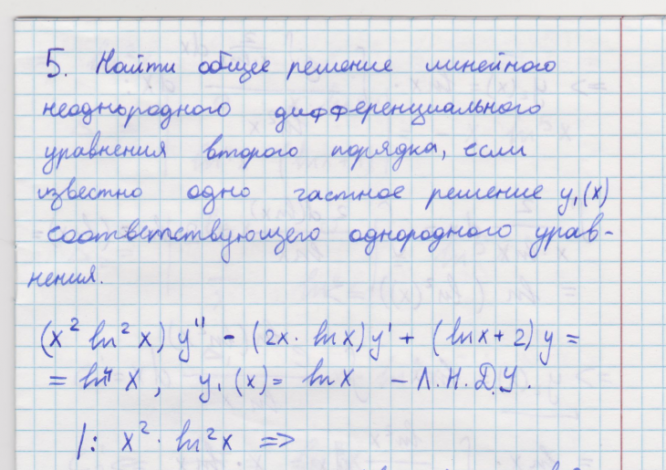 5. Найти общее решение линейного
неоднородного дифференциального
уравнения второго порядка, если
известно одно частное решение y₁(x)
соответствующего однородного урав-
нения.
(x² ln² x) y" - (2x · ln x) y' + (ln x + 2) y =
= ln⁴ x, y₁(x) = ln x - Л.Н.Д.У.
/: x² · ln² x =>